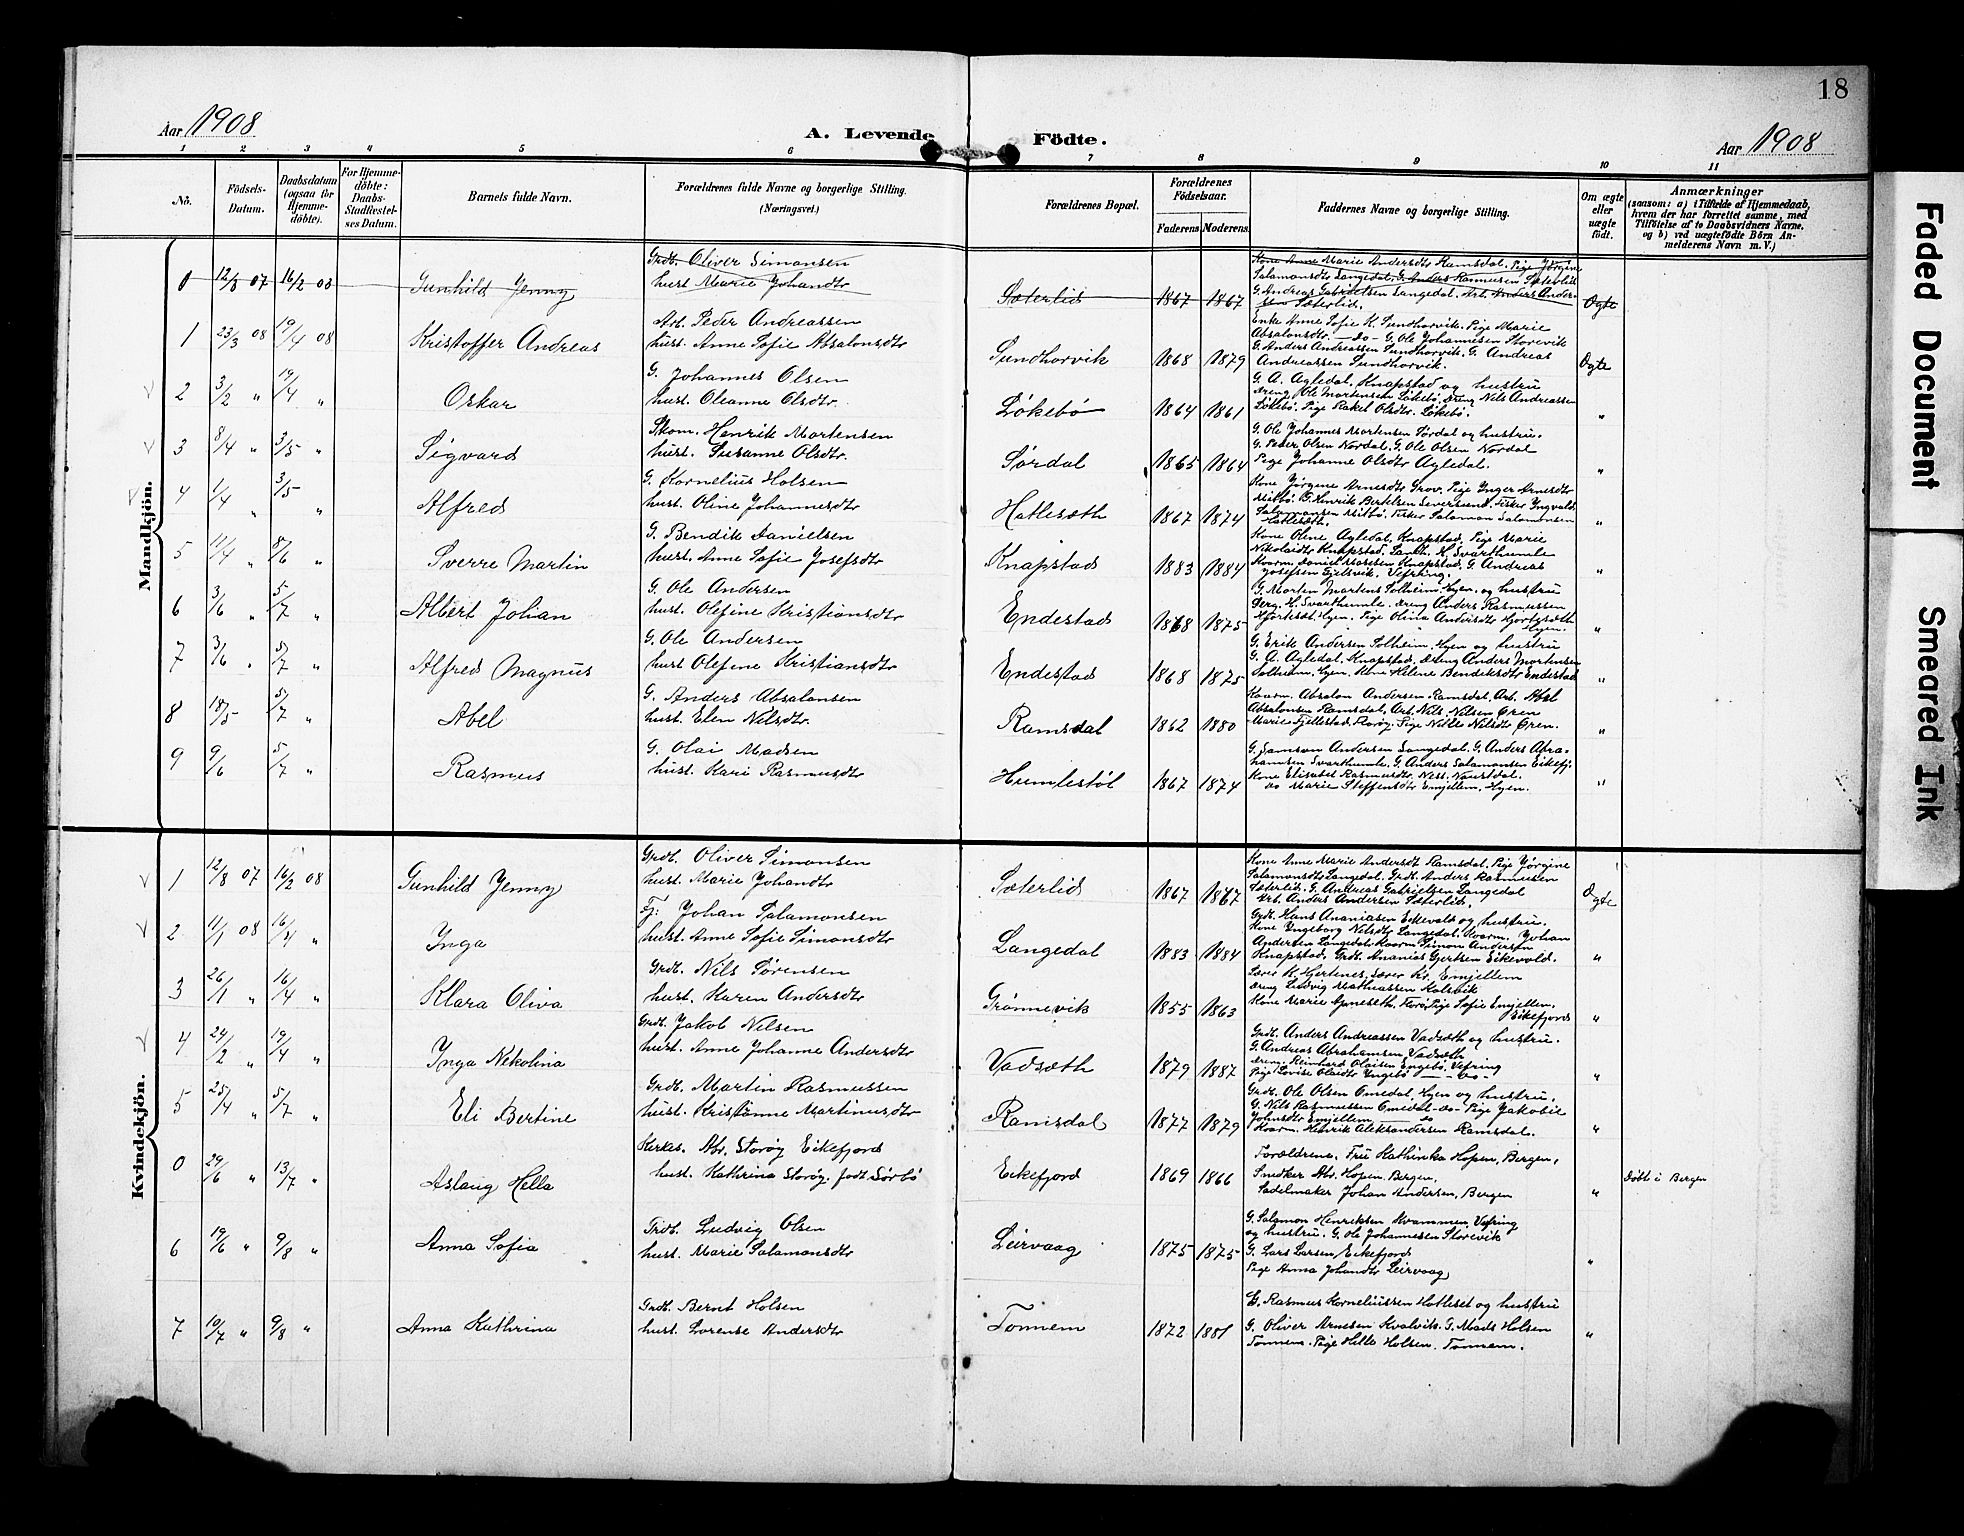 18
Aar 1908
A. Levende Födte.
Aar 1908
1 2 3 4 5 6 7 8 9 10 11
No.
Födsels-Datum.
Daabsdatum (ogsaa for Hjemme-döbte).
For Hjemme-döbte: Daabs-Stadfæstel-ses Datum.
Barnets fulde Navn.
Forældrenes fulde Navne og borgerlige Stilling. (Næringsvei.)
Forældrenes Bopæl.
Forældrenes Födselsaar.
Faderens. Moderens.
Faddernes Navne og borgerlige Stilling.
Om ægte eller uægte födt.
Anmærkninger
(saasom: a) i Tilfælde af Hjemmedaab, hvem der har forrettet samme, med Tilföielse af to Daabsvidners Navne, og b) ved uægtefödte Börn An-melderens Navn m. V.)
Mandkjön.
0 12/8 07 16/2 08 Gunhild Jenny
Grdb. Oliver Simonsen
hust Marie Johandtr
Sæterlid 1867 1867
Kone Anne Marie Andersdtr Ramsdal. Pige Jørgine
Salamonsdtr Langedal. G. Anders Rasmussen Sæterlid
G. Andreas Gabrielsen Langedal. Arb. Anders Ander-
sen Sæterlid.
Ægte
1 23/3 08 19/4 08 Kristoffer Andreas
Arb. Peder Andreassen
hust. Anne Sofie Absalonsdtr
Sundhorvik 1868 1879
Enke Anne Sofie K. Sundhorvik. Pige Marie
Absalonsdtr. —do— G. Ole Johannesen Storevik
G. Anders Andreassen Sundhorvik. G. Andreas
Andreassen Sundhorvik.
Ægte
2 3/2 " 19/4 " Oskar
G. Johannes Olsen
hust. Oleanne Olsdtr.
Løkebø 1864 1861
G. A. Agledal, Knapstad og hustru
dreng Ole Mortensen Løkebø. dreng Nils Andreassen
Løkebø. Pige Rakel Olsdtr. Løkebø.
"
3 8/4 " 3/5 " Sigvard
Skom. Henrik Mortensen
hust. Susanne Olsdtr.
Sørdal 1865 1864
G. Ole Johannes Mortensen Sørdal og hustru.
G. Peder Olsen Nordal. G. Ole Olsen Nordal
Pige Johanne Olsdtr Agledal.
"
4 1/4 " 3/5 " Alfred
G. Kornelius Holsen
hust. Oline Johannesdtr
Hatlesæth 1867 1874
Kone Jørgine Arnesdtr Grov. Pige Inger Arnesdtr
Salamonsen Midbø. Fisker Salamon Salomonsen
Hatlesæth.
"
5 11/4 " 8/6 " Sverre Martin
G. Bendik Danielsen
hust. Anne Sofie Josefsdtr
Knapstad 1883 1884
Kone Oline Agledal, Knapstad, Pige Marie
Nikolaidtr Knapstad. Landh. H. Svarthumle
Kaarm. Daniel Mosesen Knapstad, G. Andreas
Josefsen Gjelsvik, Vefring.
"
6 3/6 " 5/7 " Albert Johan
G. Ole Andersen
hust. Olefine Kristiansdtr
Endestad 1868 1875
G. Morten Martens Solheim, Hyen, og hustru
Derg. H. Svarthumle. dreng Anders Rasmussen
Hjortesæt Hyen. Pige Olina Andersdtr Hjortesæth
Hyen.
"
7 3/6 " 5/7 " Alfred Magnus
G. Ole Andersen
hust Olefine Kristiansdtr
Endestad 1868 1875
G. Erik Andersen Solheim, Hyen og hustru
G. A. Agledal, Knapstad, dreng Anders Mortensen
Solheim, Hyen. Kone Helene Bendiksdtr Endestad
"
8 18/5 5/7 " Abel
G. Anders Absalonsen
hust. Elen Nilsdtr.
Ramsdal 1862 1880
Kaarm. Absalon Andersen Ramsdal. Arb. Abel
Absalonsen Ramsdal. Arb. Nils Nilsen Øren
Marie Fjellestad, Florø. Pige Nille Nilsdtr Øren.
"
9 9/6 5/7 " Rasmus
G. Olai Madsen
hust. Kari Rasmusdtr
Humlestøl 1867 1874
G. Samson Andersen Langedal. G. Anders Abra-
hamsen Svarthumle. G. Anders Salamonsen Eikefj.
Kone Elisabet Rasmusdtr, Ness, Naustdal.
do Marie Steffensdtr Emjellem, Hyen.
"
Kvindekjön.
1 12/8 07 16/2 08 Gunhild Jenny
Grdb. Oliver Simonsen
hust. Marie Johandtr
Sæterlid 1867 1867
Kone Anne Marie Andersdt Ramsdal. Pige Jørgine
Salamonsdtr Langedal. Grdb. Anders Rasmussen
Sæterlid. G. Andreas Gabrielsen Langedal
Arb. Anders Andersen Sæterlid.
Ægte
2 11/1 08 16/4 " Inga
Fj: Johan Salamonsen
hust. Anne Sofie Simonsdtr
Langedal 1883 1884
Grdb. Hans Ananiasen Eikevold og hustru.
Kone Ingeborg Nilsdtr Langedal. Kaarm. Johan
Andersen Langedal. Kaarm Simon Andersen
Knapstad. Grdb. Ananias Gjertsen Eikevold.
"
3 26/1 " 16/4 " Klara Oliva
Grdb. Nils Sørensen
hust. Karen Andersdtr
Grønnevik 1855 1863
Lærer K. Hjertenes. Lærer Kr. Emjellem
dreng Ludvig Mathiassen Kolsvik
Kone Marie Gjneseth. Florø. Pige Sofie Emjellem.
Eikefjord
"
4 24/2 " 19/4 " Inga Nikolina
Grdb. Jakob Nilsen
hust. Anne Johanne Andersdtr
Vadsæth 1879 1887
Grdb. Anders Andreassen Vadsæth og hustru.
G. Andreas Abrahamsen Vadsæth
dreng Reinhard Olaisen Engebø, Vefring
Pige Lovise Olaidtr Engebø —do—
"
5 25/4 " 5/7 " Eli Bertine
Grdb. Martin Rasmussen
hust. Kristianne Martinusdtr
Ramsdal 1877 1879
Grdb. Ole Olsen Omedal Hyen og hustru.
G. Nils Rasmussen Omedal —do— Pige Jakobie
Johnsdtr Emjellem —do—
Kaarm. Henrik Aleksandersen Ramsdal.
"
0 29/6 " 13/7 " Aslaug Hella
Kirkes. Abr. Storøy Eikefjord
hust. Kathrina Storøy, født Sørbø
Eikefjord 1869 1866
Forældrene. Fru Kathinka Hopen, Bergen,
Snedker Abr. Hopen, Bergen,
Sadelmaker Johan Andersen, Bergen
"
Døbt i Bergen
6 19/6 " 9/8 " Anna Sofia
Grdb. Ludvig Olsen
hust. Marie Salamonsdtr
Leirvaag 1875 1875
G. Salamon Henriksen Kvammen, Vefring
og hustru. G. Ole Johannesen Storevik
G. Lars Larsen, Eikefjord
Pige Anna Johandtr Leirvaag
"
7 10/7 " 9/8 " Anna Kathrina
Grdb. Bernt Holsen
hust. Lorense Andersdtr
Tonnem 1872 1881
G. Rasmus Korneliussen Hatleset og hustru
G. Oliver Arnesen Kvalvik. G. Mads Holsen
Tonnem. Pige Hille Holsen. Tonnem.
"
Faded Document
Smeared Ink